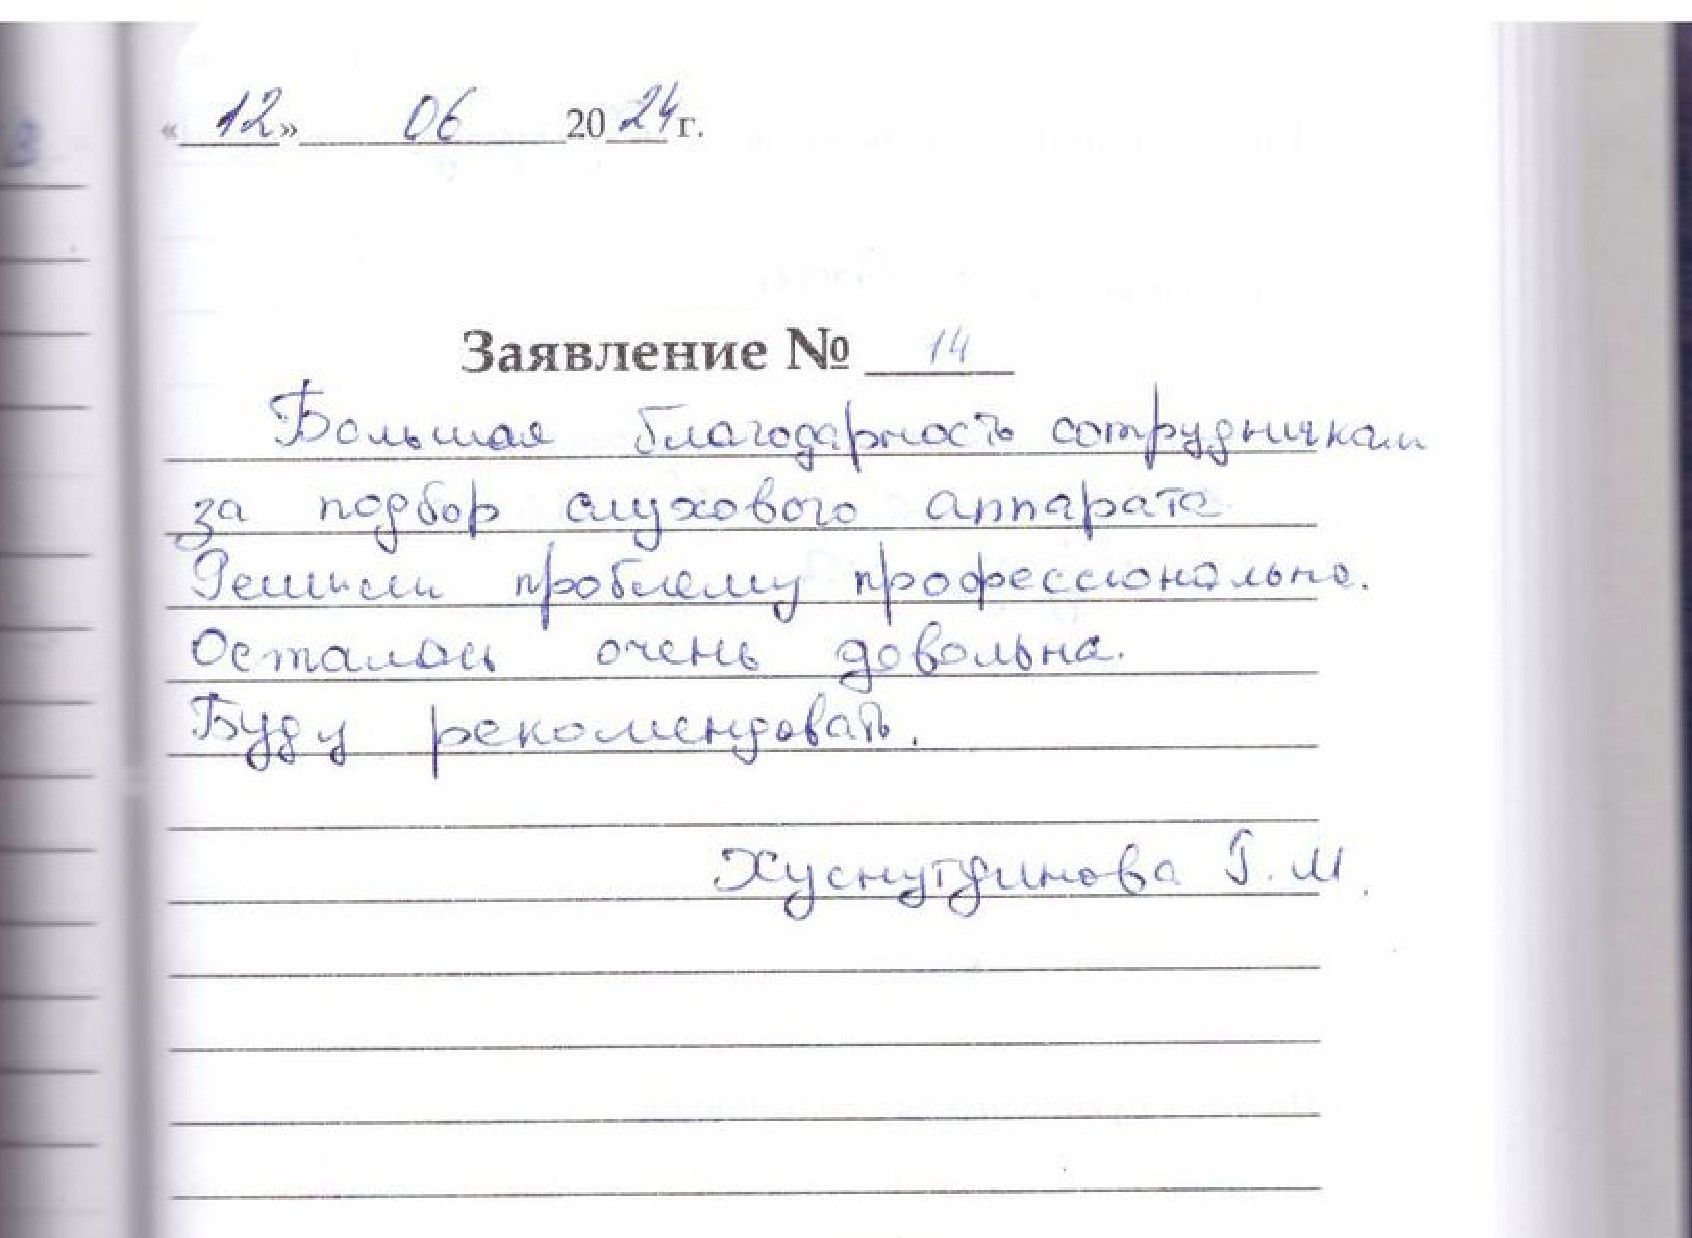 «12» 06 2024 г.
Заявление № 14
Большая благодарность сотрудникам
за подбор слухового аппарата
Решили проблему профессионально.
Осталась очень довольна.
Буду рекомендовать.
Хуснутдинова Г. М.